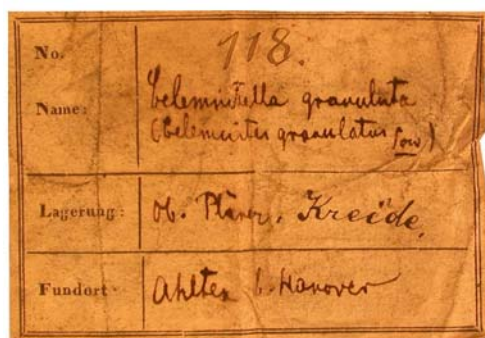 No. 118.
Name: Belemnitella granulata
(Belemnites granulatus Sow)
Lagerung: Ob. Pläner. Kreide.
Fundort: Ahlten b. Hanover